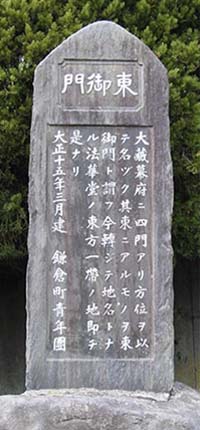 東御門
大蔵幕府ニ四門アリ方位ヲ以
テ名ヅク其東ニアルモノヲ東
御門ト謂フ今轉ジテ地名トナ
ル法華堂ノ東方一帶ノ地即チ
是ナリ
大正十五年三月建 鎌倉町青年團